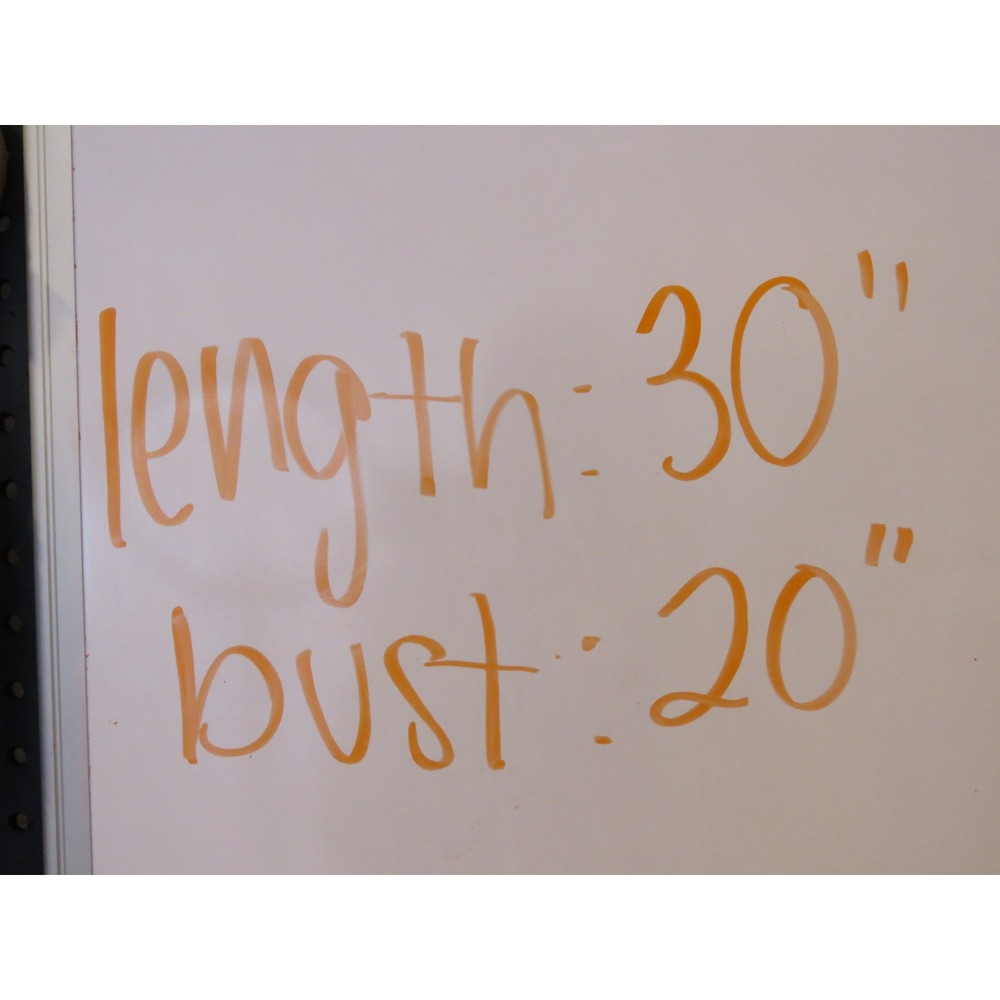 length: 30"
bust: 20"